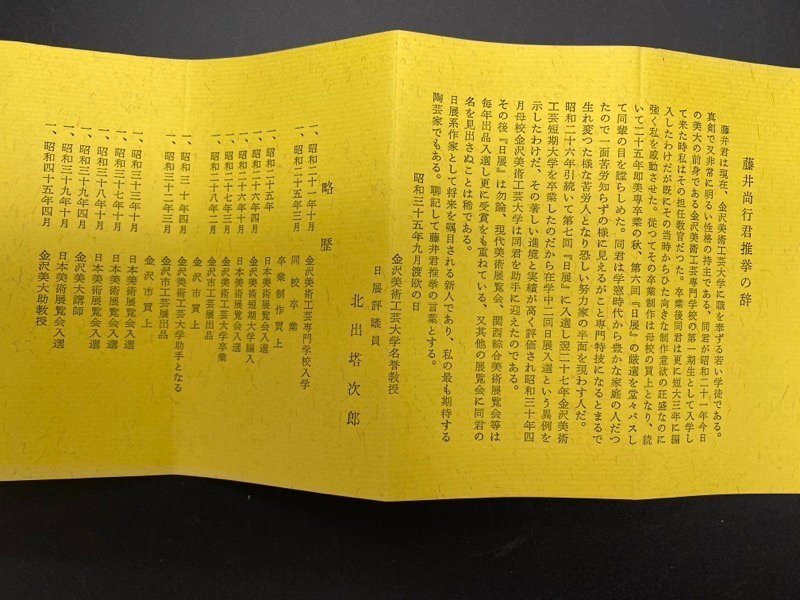 藤井尚行君推挙の辞
藤井君は現在、金沢美術工芸大学に職を奉ずる若い学徒である。
真剣で又非常に明るい性格の持主である、同君が昭和二十一年今日
の美大の前身である金沢美術工芸専門学校の第一期生として入学し
て来た時私はその担任教官だつた。卒業後同君は更に短大三年に編
入したわけだが既にその当時からひた向きな制作意欲の旺盛なのに
強く私を感動させた。従つてその卒業制作は母校の買上となり、続
いて二十五年即美専卒業の秋、第六回『日展』の厳選を堂々パスし
て同輩の目を瞠らしめた。同君は学窓時代から豊かな家庭の人だつ
たので一面苦労知らずの様に見えるがこと専門特技になるとまるで
生れ変つた様な苦労人となり恐しい努力家の半面を現わす人だ。
昭和二十六年引続いて第七回『日展』に入選し現二十七年金沢美術
工芸短期大学を卒業したのだから在学中二回日展入選という異例を
示したわけだ、その著しい進境と業績が高く評価され昭和三十年四
月母校金沢美術工芸大学は同君を助手に迎えたのである。
その後『日展』は勿論、現代美術展覧会、関西綜合美術展覧会等は
毎年出品入選し更に受賞をも重ねている、又其他の展覧会に同君の
名を見出さぬことは稀である。
日展系作家として将来を嘱目される新人であり、私の最も期待する
陶芸家でもある。聊記して藤井君推挙の言葉とする。
昭和三十五年九月渡欧の日
金沢美術工芸大学名誉教授
日展評議員
北出塔次郎
略歴
一、昭和二十一年十月 金沢美術工芸専門学校入学
同校卒業
一、昭和二十五年 卒業制作買上
日本美術展覧会入選
一、昭和二十六年四月 金沢美術短期大学編入
一、昭和二十六年十月 日本美術展覧会入選
一、昭和二十七年三月 金沢美術工芸大学卒業
一、昭和二十八年二月 金沢市工芸展出品
金沢市買上
一、昭和三十年四月 金沢美術工芸大学助手となる
一、昭和三十二年三月 金沢市工芸展出品
金沢市買上
一、昭和三十三年十月 日本美術展覧会入選
一、昭和三十七年十月 日本美術展覧会入選
一、昭和三十八年十月 日本美術展覧会入選
一、昭和三十九年四月 金沢美大講師
一、昭和三十九年十月 日本美術展覧会入選
一、昭和四十五年四月 金沢美大助教授